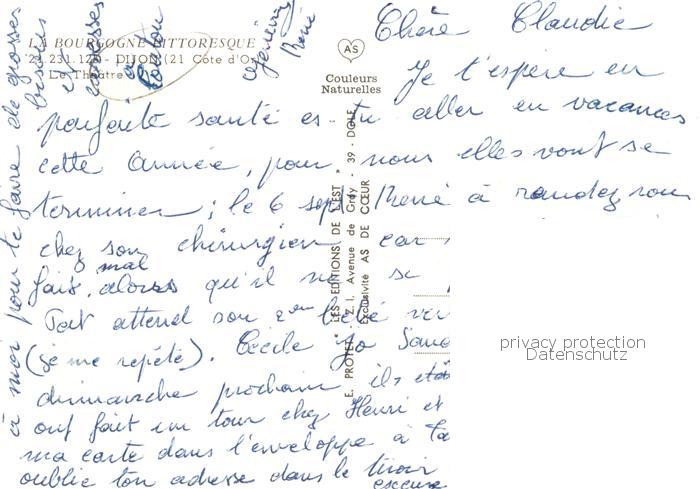 LA BOURGOGNE PITTORESQUE
21.231.126 - DIJON (21 Côte d'Or)
Le Théâtre
AS
Couleurs
Naturelles
" LES EDITIONS DE L'EST "
E. PROTET - Z.I. Avenue de Gray - 39 - DOLE
Exclusivité AS DE CŒUR
Chère Claudie
Je t'espère en
parfaite santé es-tu aller en vacances
cette année, pour nous elles vont se
terminer ; le 6 sept René à randez vous
chez son chirurgien car
mal
fait, alors qu'il ne se
Tat attend son 2em bébé
(je me répète). Cécile Jo
dimanche prochain ils
ont fait un tour chez Henri et
ma carte dans l'enveloppe à Ta
oublié ton adresse dans le tiroir
à moi pour te faire de grosses
bisous
et
caresses
à
Loulou
René
privacy protection
Datenschutz